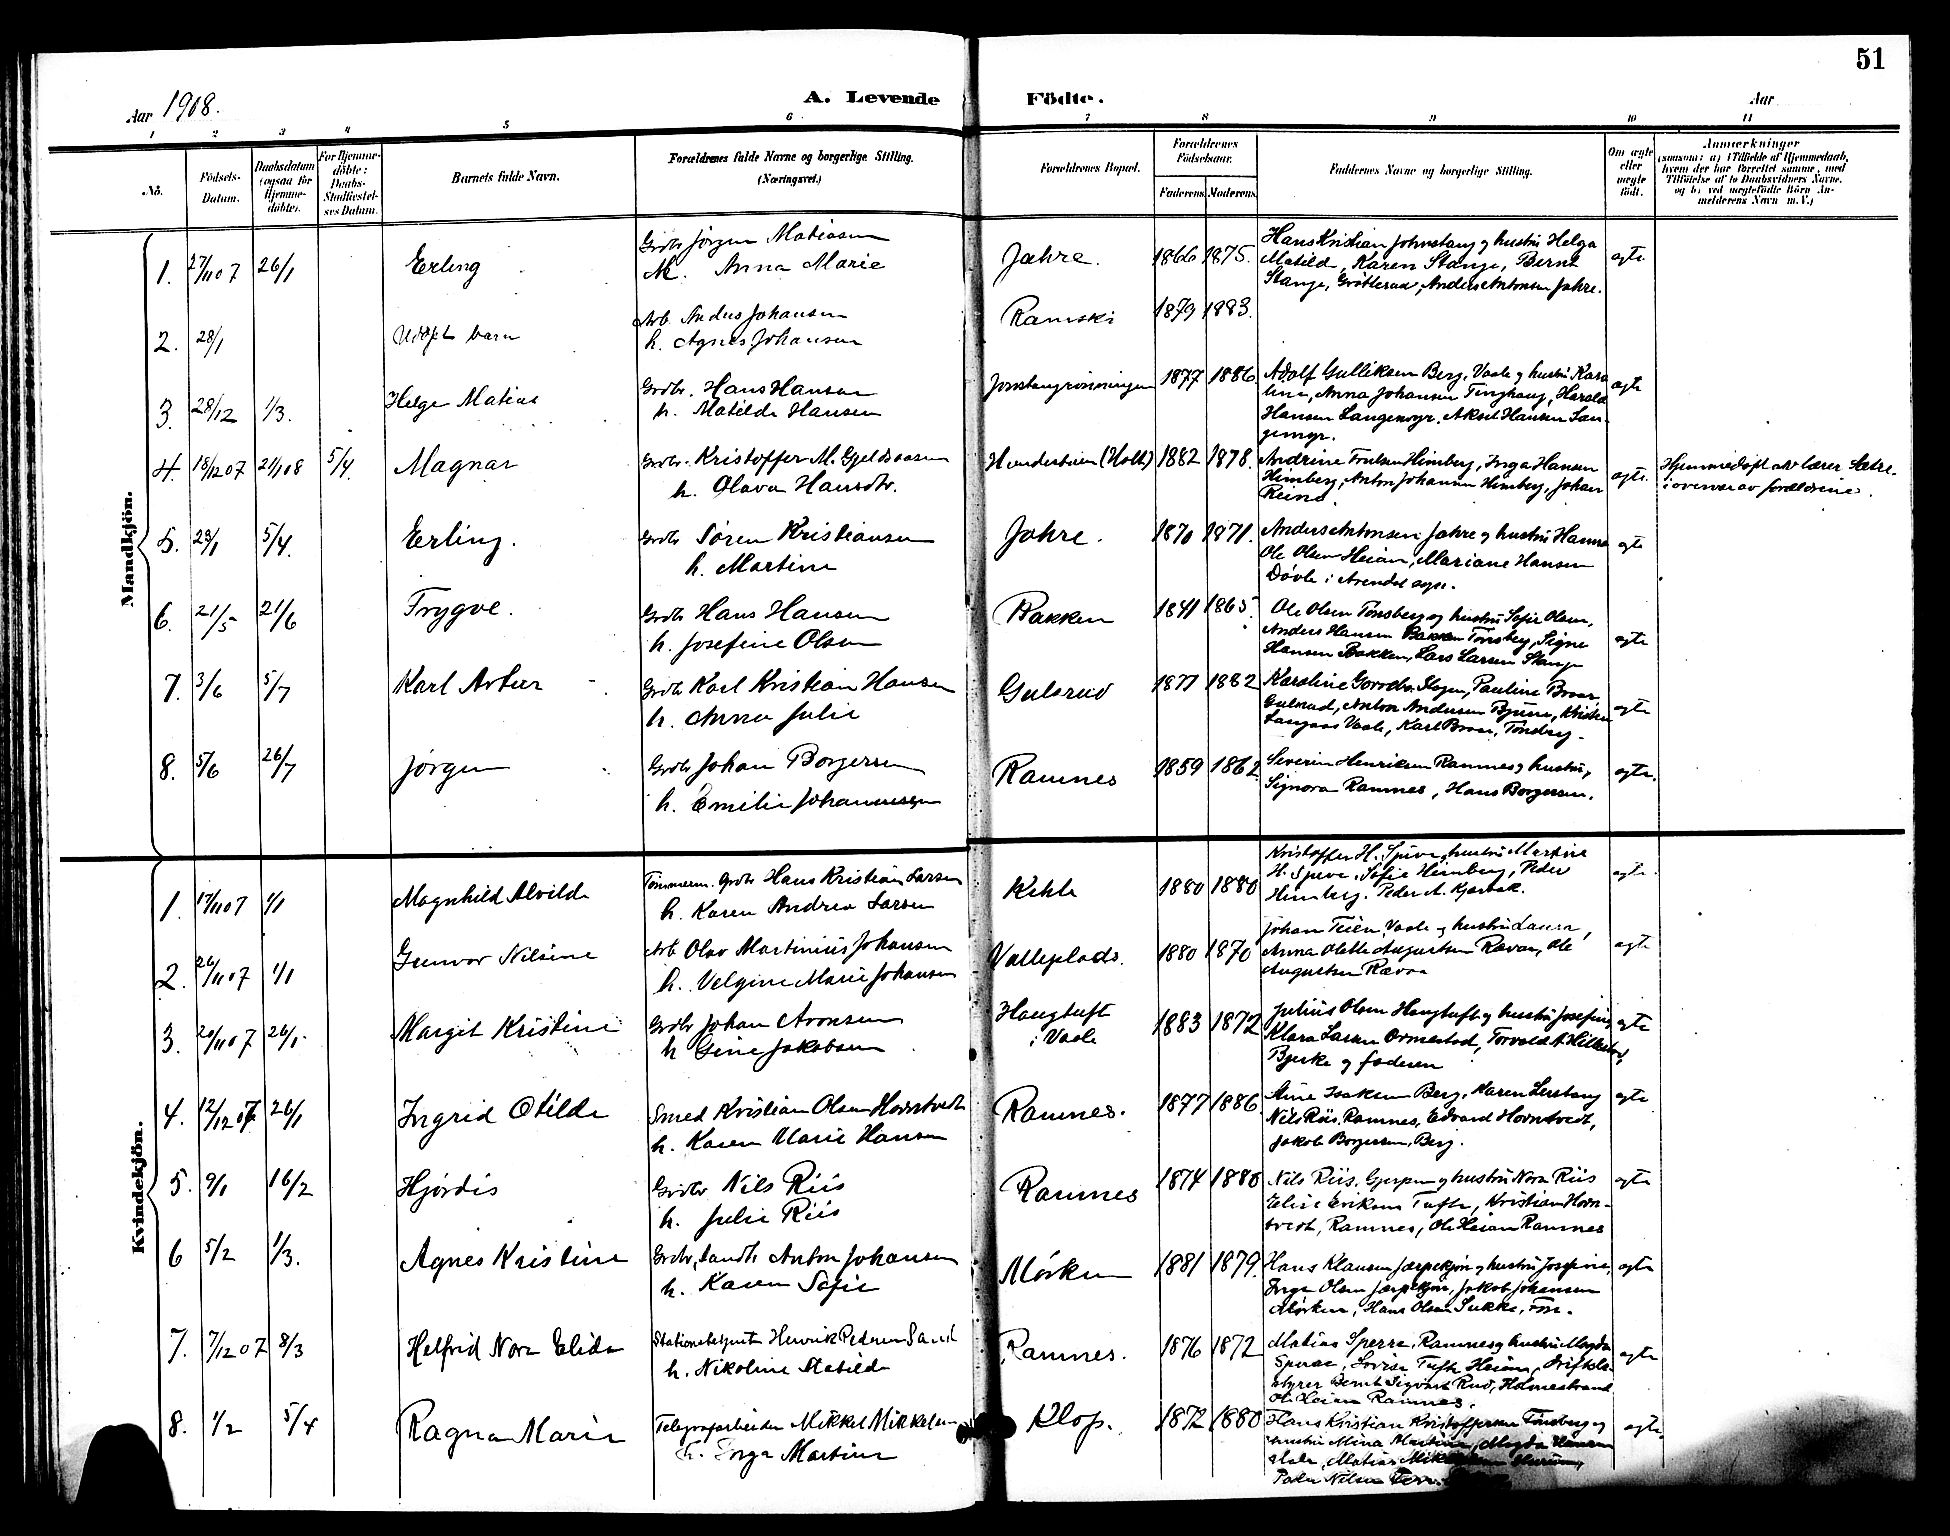 51
Aar 1908.
A. Levende Födte.
Aar
1 2 3 4 5 6 7 8 9 10 11
No.
Födsels-
Datum.
Daabsdatum
(ogsaa for
Hjemme-
döbte).
For Hjemme-
döbte:
Daabs-
Stadfæstel-
ses Datum.
Barnets fulde Navn.
Forældrenes fulde Navne og borgerlige Stilling.
(Næringsvei.)
Forældrenes Bopæl.
Forældrenes
Födselsaar.
Faderens. Moderens.
Faddernes Navne og borgerlige Stilling.
Om ægte
eller
uægte
födt.
Anmærkninger
(saasom: a) i Tilfælde af Hjemmedaab,
hvem der har forrettet samme, med
Tilföielse af to Daabsvidners Navne,
og b) ved uægtefödte Börn An-
melderens Navn m.V.)
Mandkjön.
1. 27/11 07 26/1 Erling
Grdbr Jørgen Matiasen
Anna Marie
Jahre. 1866 1875.
Hans Kristian Johnstang og hustru Helga
Matild, Karen Stange, Bernt
Stange, Grötterud, Anders Antonsen Jahre.
ægte
2. 28/1 Udöpt barn
Arb. Anders Johansen
h. Agnes Johansen
Ramski 1879 1883.
3. 28/12 1/3. Helge Matias
Grdbr. Hans Hansen
h. Matilde Hansen
1877 1886
Adolf Gulliksen Berg, Vaale og hustru Karo
line, Anna Johansen Tinghaug, Harald
Hansen Langemyr, Aksel Hansen Lan-
gemyr.
ægte
4. 18/12 07 21/1 08 5/4 Magnar
Grdbr. Kristoffer M. Gjeldsaasen
h. Olava Hansdtr.
(Holt) 1882 1878.
Andrine Trulsen Himberg, Inga Hansen
Himberg, Anton Johannsen Himberg, Johan
Reine
ægte.
Hjemmedøpt av lærer Sætre.
i overvær av forældrene.
5. 23/1 5/4. Erling.
Grdbr Søren Kristiansen
h. Martine
Jahre. 1870 1871.
Anders Antonsen Jahre og hustru Hanna
Ole Olsen Heian, Mariane Hansen
Døvle i Arendal sogn.
ægte
6. 21/5 21/6 Trygve.
Grdbr Hans Hansen
h. Josefine Olsen
Bakken 1841 1865.
Ole Olsen Tønsberg og hustru Sofie Olsen,
Anders Hansen Bakken Tønsberg, Signe
Hansen Bakken, Lars Larsen Stange
ægte
7. 3/6 5/7 Karl Artur
Grdbr Karl Kristian Hansen
h. Anna Julie
Gulsrud 1877 1882
Karoline Slagen, Pauline Braar
Gulsrud, Anton Andersen Bjune, Kristen
Langaas Vaale, Karl Braar, Tønsberg.
ægte
8. 5/6 26/7 Jørgen
Grdbr Johan Borgersen
h. Emilie Johannessen
Ramnes 1859 1862
Severin Henriksen Ramnes og hustru,
Signora Ramnes, Hans Borgersen.
ægte.
Kvindekjön.
1. 17/11 07 1/1 Magnhild Alvilde
Tømmerm. Grdbr Hans Kristian Larsen
h. Karen Andrea Larsen
Kihle 1880 1880
Kristoffer H. Spirve og hustru Martine
H. Spirve, Sofie Himberg, Peder
Himberg, Peder A. Kjærbak.
ægte.
2. 26/11 07 1/1 Gunvor Nilsine
Arb Olav Martinius Johansen
h. Velgine Marie Johansen
Valleplads. 1880 1870
Johan Teien, Vaale og hustru Laura,
Anna Olette Augustsen Rævaa, Ole
Augustsen Rævaa
ægte
3. 20/11 07 26/1. Margit Kristine
Grdbr Johan Aronsen
h Gine Jakobsen
Haugtuft
i Vaale
1883 1872
Julius Olsen Haugtuft og hustru Josefine,
Klara Larsen Ormestad, Torvald A. Hillestad,
Bjerke og faderen
ægte
4. 12/12 07 26/1 Ingrid Otilde
Smed Kristian Olsen Horntvedt
h. Karen Marie Hansen
Ramnes. 1877 1886
Aine Isaksen Berg, Karen Lerstang
Nils Riis, Ramnes, Edvard Horntvedt,
Jakob Borgersen, Berg.
ægte
5. 9/1 16/2 Hjørdis
Grdbr Nils Riis
h. Julie Riis
Ramnes 1874 1880
Nils Riis, Gjerpen og hustru Nora Riis
Elise Eriksen Tufte, Kristian Horn-
tvedt, Ramnes, Ole Heian Ramnes
ægte
6 5/2 1/3. Agnes Kristine
Grdbr, Sandbr Anton Johansen
h. Karen Sofie
Mørken 1881 1879.
Hans Klausen Jarpekjøn og hustru Josefine,
Inga Olsen Jarpekjøn, Jakob Johansen
Mørken, Hans Olsen Sukke, Fon.
ægte
7. 7/12 07 8/3 Helfrid Nora Elida
Stationsbetjent Henrik Pedersen Sand
h. Nikoline Matilde
Ramnes. 1876 1872
Matias Sperre, Ramnes og hustru Magda
Sperre, Lovise Tufte Heian, Driftsbe-
styrer Bernt Sigvart Rud, Holmestrand
Ole Heian Ramnes.
ægte
8. 1/2 5/4 Ragna Marie
Telegrafarbeider Mikkel Mikkelsen
h. Inga Martine
Klop. 1872 1880
Hans Kristian Kristoffersen Tønsberg og
hustru Mina Martine, Magda
Matias
Peder Nilsen
ægte.